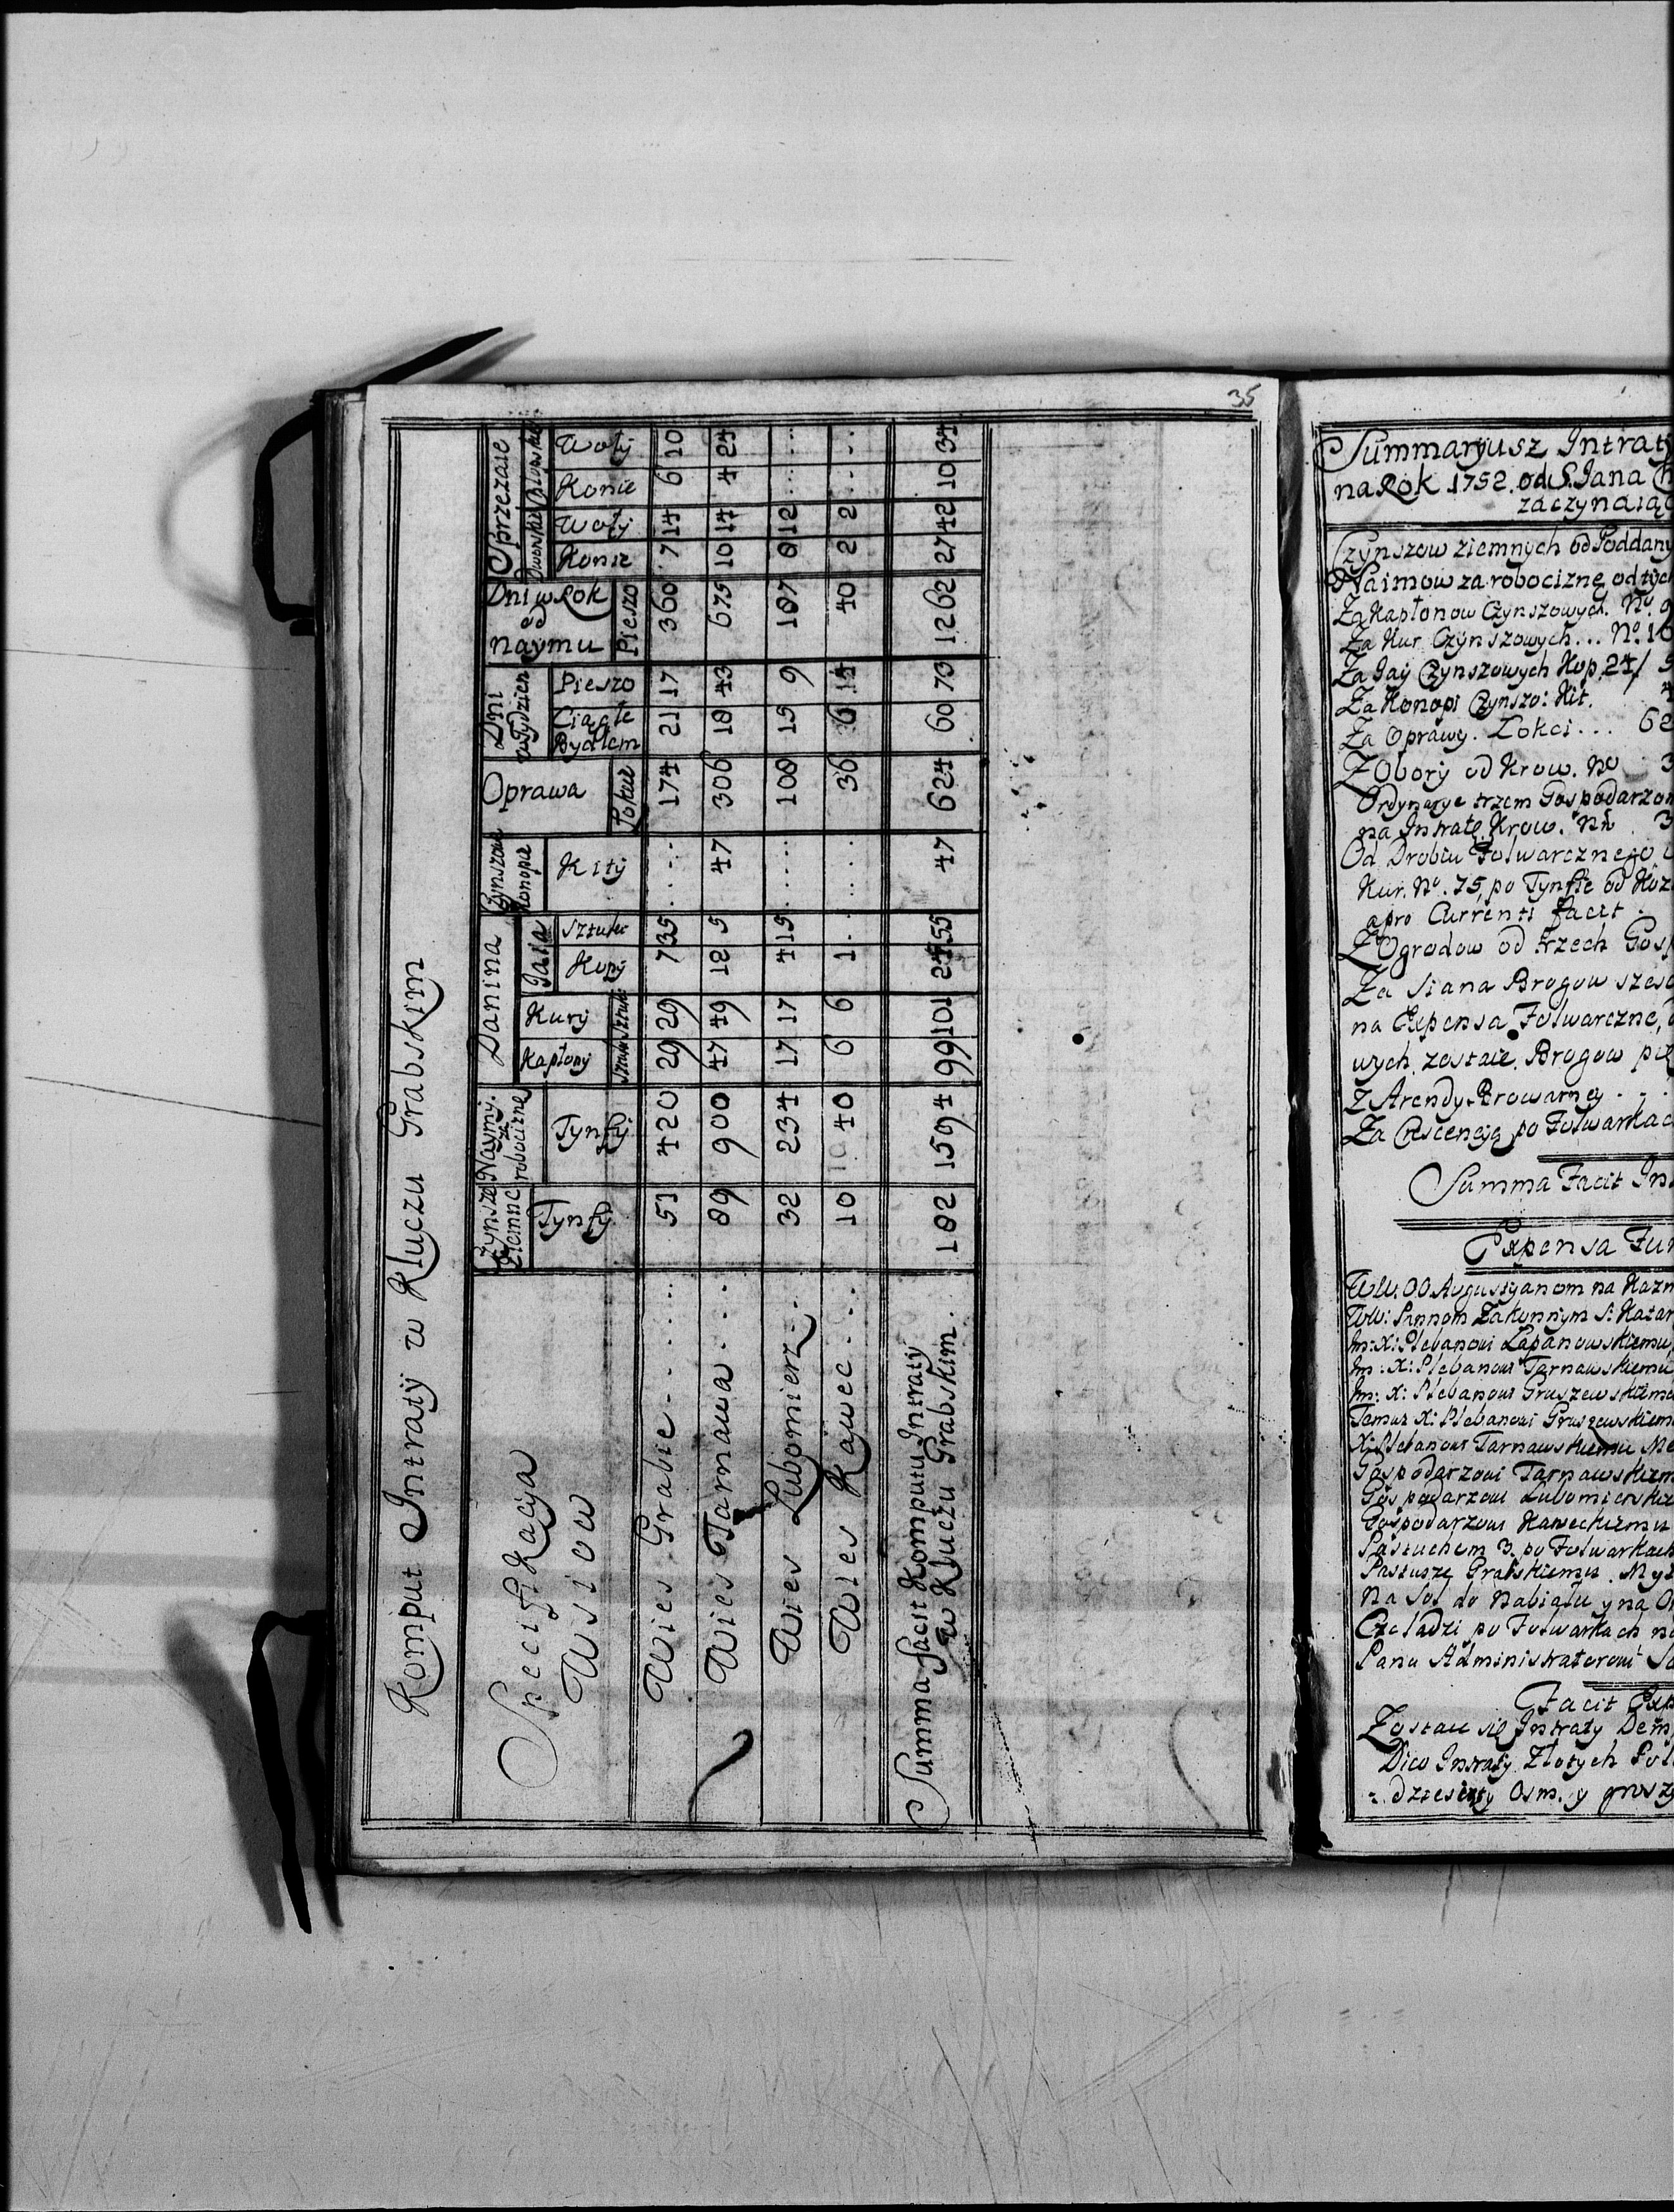 35
Komput Intraty w Kluczu Grabskim
Specifikacya Wsiow | Czynsze Ziemne Tynfy | Naymy za robociznę Tynfy | Danina Kapłony Sztuk | Kury Sztuk: | Jaia Kopy | Sztuki | Czynszowe Konopie Kity | Oprawa Łokcie | Dni w Tydzien Ciągłe Bydłem | Pieszo | Dni w Rok od naymu Pieszo | Sprzężaie Dworskie Konie | Woły | Chłopskie Konie | Woły
Wies Grabie . . . | 51 | 420 | 29 | 29 | 7 | 35 | . . . | 174 | 21 | 17 | 360 | 7 | 14 | 6 | 10
Wies Tarnawa . . . | 89 | 900 | 47 | 49 | 12 | 5 | 47 | 306 | 18 | 43 | 675 | 10 | 14 | 4 | 24
Wies Lubomierz . . | 32 | 234 | 17 | 17 | 4 | 15 | . . . | 108 | 15 | 9 | 187 | 8 | 12 | . . . | . . .
Wies Kawec . . . | 10 | 40 | 6 | 6 | 1 | . . | . . . | 36 | 6 | 14 | 40 | 2 | 2 | . . . | . . .
Summa facit Komputu Intraty
w Kluczu Grabskim . . | 182 | 1594 | 99 | 101 | 24 | 55 | 47 | 624 | 60 | 73 | 1262 | 27 | 42 | 10 | 34
Summaryusz Intraty
na Rok 1752. od S. Jana
zaczynaiąc
Czynszow ziemnych od Poddany
Naimow za robociznę od tych
Za Kapłonow Czynszowych. No. 9
Za Kur Czynszowych... No. 10
Za Jay Czynszowych Kop. 24/ 5
Za Konopi Czynszo: Kit. 4
Za Oprawy. Łokci... 62
Z Obory od Krow. No 3
Ordynarye trzem Gospodarzom
na Intratę Krow. No 3
Od Drobiu Folwarcznego
Kur. No. 75, po Tynfie od
a pro Currenti facit .
Z Ogrodow od trzech Gosp
Za Siana Brogow sześć
na Expensa Folwarczne,
wych zostaie Brogow pię
Z Arendy Browarney . . .
Za Crescencyą po Folwarkach
Summa Facit Int
Expensa Fun
WW. OO. Augustyanom na Kazm
WW: Pannom Zakonnym S: Katar
Jm: X: Plebanowi Łapanowskiemu,
Jm: X: Plebanowi Tarnawskiemu
Jm: X: Plebanowi Gruszewskiemu
Temuż X: Plebanowi Gruszewskiem
X: Plebanowi Tarnawskiemu Me
Gospodarzowi Tarnawskiem
Gospodarzowi Lubomierskie
Gospodarzowi Kaweckiemu
Pastuchom 3. po Folwarkach
Pastusze Grabskiemu. Myt
Na Sol do Nabiału y na O
Czeladzi po Folwarkach na
Panu Administratorowi Sa
Facit Exp
Zostaie się Intraty Dem
Dico Intraty Złotych Pol
dziesięty Osm. y groszy